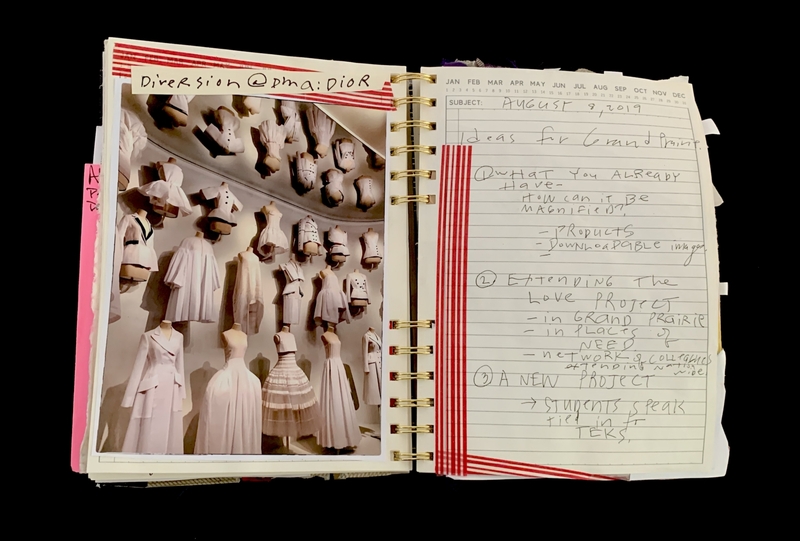 Diversion @ Dma: DIOR
JAN FEB MAR APR MAY JUN JUL AUG SEP OCT NOV DEC
SUBJECT: AUGUST 8, 2019
Ideas for Grand Prairie.
① WHAT YOU ALREADY
HAVE-
HOW CAN IT BE
MAGNIFIED?
- PRODUCTS
- DOWNLOADABLE images
-
② EXTENDING THE
LOVE PROJECT
- in GRAND PRAIRIE
- in PLACES of
NEED
- network & COLLEAGUES
extending nation
wide
③ A NEW PROJECT
→ STUDENTS SPEAK
tied in to
TEKS.